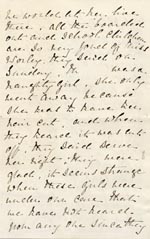 he would let her live
there, all the boarded
out and school children
are so very fond of Miss
Morley, they said on
Sunday, it was
naughty girl, she only
went away because
she had to have her
hair cut, and when
they heard it was cut
off, they said serve
her right, they were
glad, it seems strange
when these girls were
under our care that
we have not heard
from any one since they